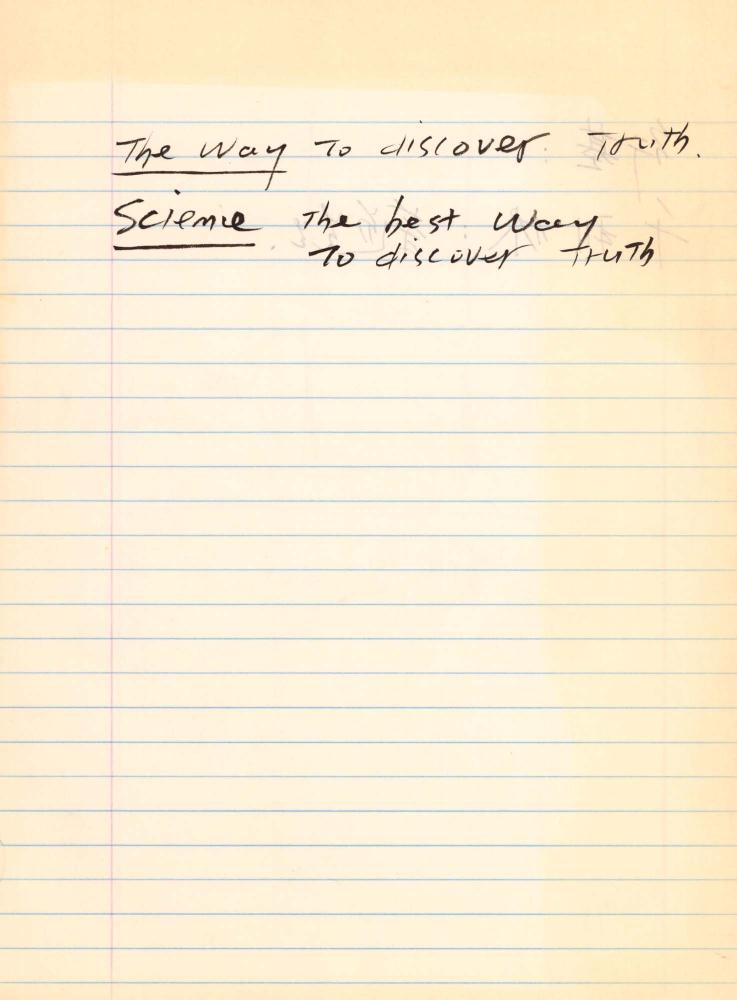 The Way To discover Truth.
Science The best Way
To discover Truth